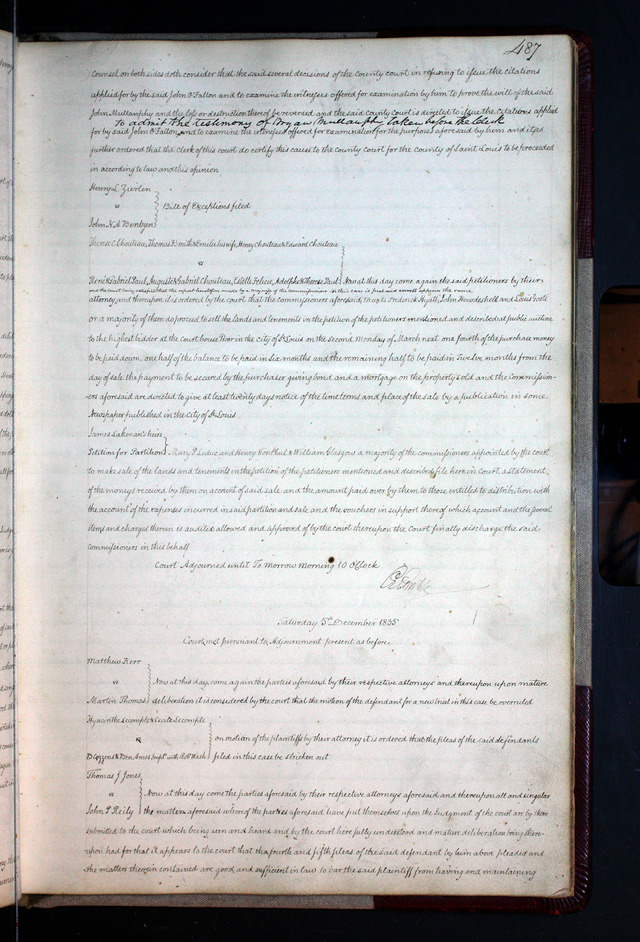 487
Counsel on both sides doth consider that the said several decisions of the County court in refusing to issue the citations
applied for by the said John O'Fallon and to examine the witnesses offered for examination by him to prove the will of the said
John Mullanphy and the loss or destruction thereof be reversed and the said County Court is directed to issue the citations applied
to admit the testimony of Bryan Mullanphy taken before the Clerk
for by said John O'Fallon, and to examine the witnesses offered for examination for the purposes aforesaid by him and it is
further ordered that the clerk of this court do certify this cause to the County Court for the County of Saint Louis to be proceeded
in according to law and this opinion
Henry L Zwrlen
vs Bill of Exceptions filed
John N A Bentzen
Therese C Chouteau, Thomas F Smith & Emilie his wife Henry Chouteau & Edward Chouteau
vs
René & Gabriel Paul, Auguste & Gabriel Chouteau, Estelle Adolphe & Therese Paul Now at this day come again the said petitioners by their
attorney, and thereupon it is ordered by the court that the commissioners aforesaid to wit Frederick Hyatt, John Howdeshell and Louis
or a majority of them do proceed to sell the lands and tenements in the petition of the petitioners mentioned and described at public auction
to the highest bidder at the court house door in the city of St Louis on the second Monday of March next one fourth of the purchase money
to be paid down, one half of the balance to be paid in six months and the remaining half to be paid in Twelve months from the
day of sale the payment to be secured by the purchaser giving bond and a mortgage on the property sold and the Commission-
-ers aforesaid are directed to give at least twenty days notice of the time terms and place of the sale by a publication in some
Newspaper published in the City of St Louis
James heirs
Petition for Partition Mary P Leduc and Henry Von Phul & William Glasgow a majority of the commissioners appointed by the court
to make sale of the lands and tenements in the petition of the petitioners mentioned and described file here in Court a statement
of the moneys received by them on account of said sale and the amount paid over by them to those entitled to distribution with
the account of the expenses incurred in said partition and sale and the vouchers in support thereof which account and the several
items and charges therein is audited allowed and approved of by the court thereupon the Court finally discharge the said
commissioners in this behalf
Court Adjourned until To Morrow Morning 10 O'Clock
Saturday 5th December 1835
Court met pursuant to Adjournment present as before
Matthew Kerr
vs Now at this day, come again the parties aforesaid by their respective attorneys and thereupon upon mature
Martin Thomas deliberation it is considered by the court that the motion of the defendant for a new trial in this case be overruled
Hyacinthe Lecompte & Cecile Lecompte
vs on motion of the plaintiffs by their attorney it is ordered that the pleas of the said defendants
filed in this case be stricken out
Thomas J Jones
vs Now at this day come the parties aforesaid by their respective attorneys aforesaid and thereupon all and singular
John P Reily the matters aforesaid whereof the parties aforesaid have put themselves upon the Judgment of the court are by them
submitted to the court which being seen and heard and by the court here fully understood and mature deliberation being there-
upon had for that it appears to the court that the fourth and fifth pleas of the said defendant by him above pleaded and
the matters therein contained are good and sufficient in law to bar the said plaintiff from having and maintaining